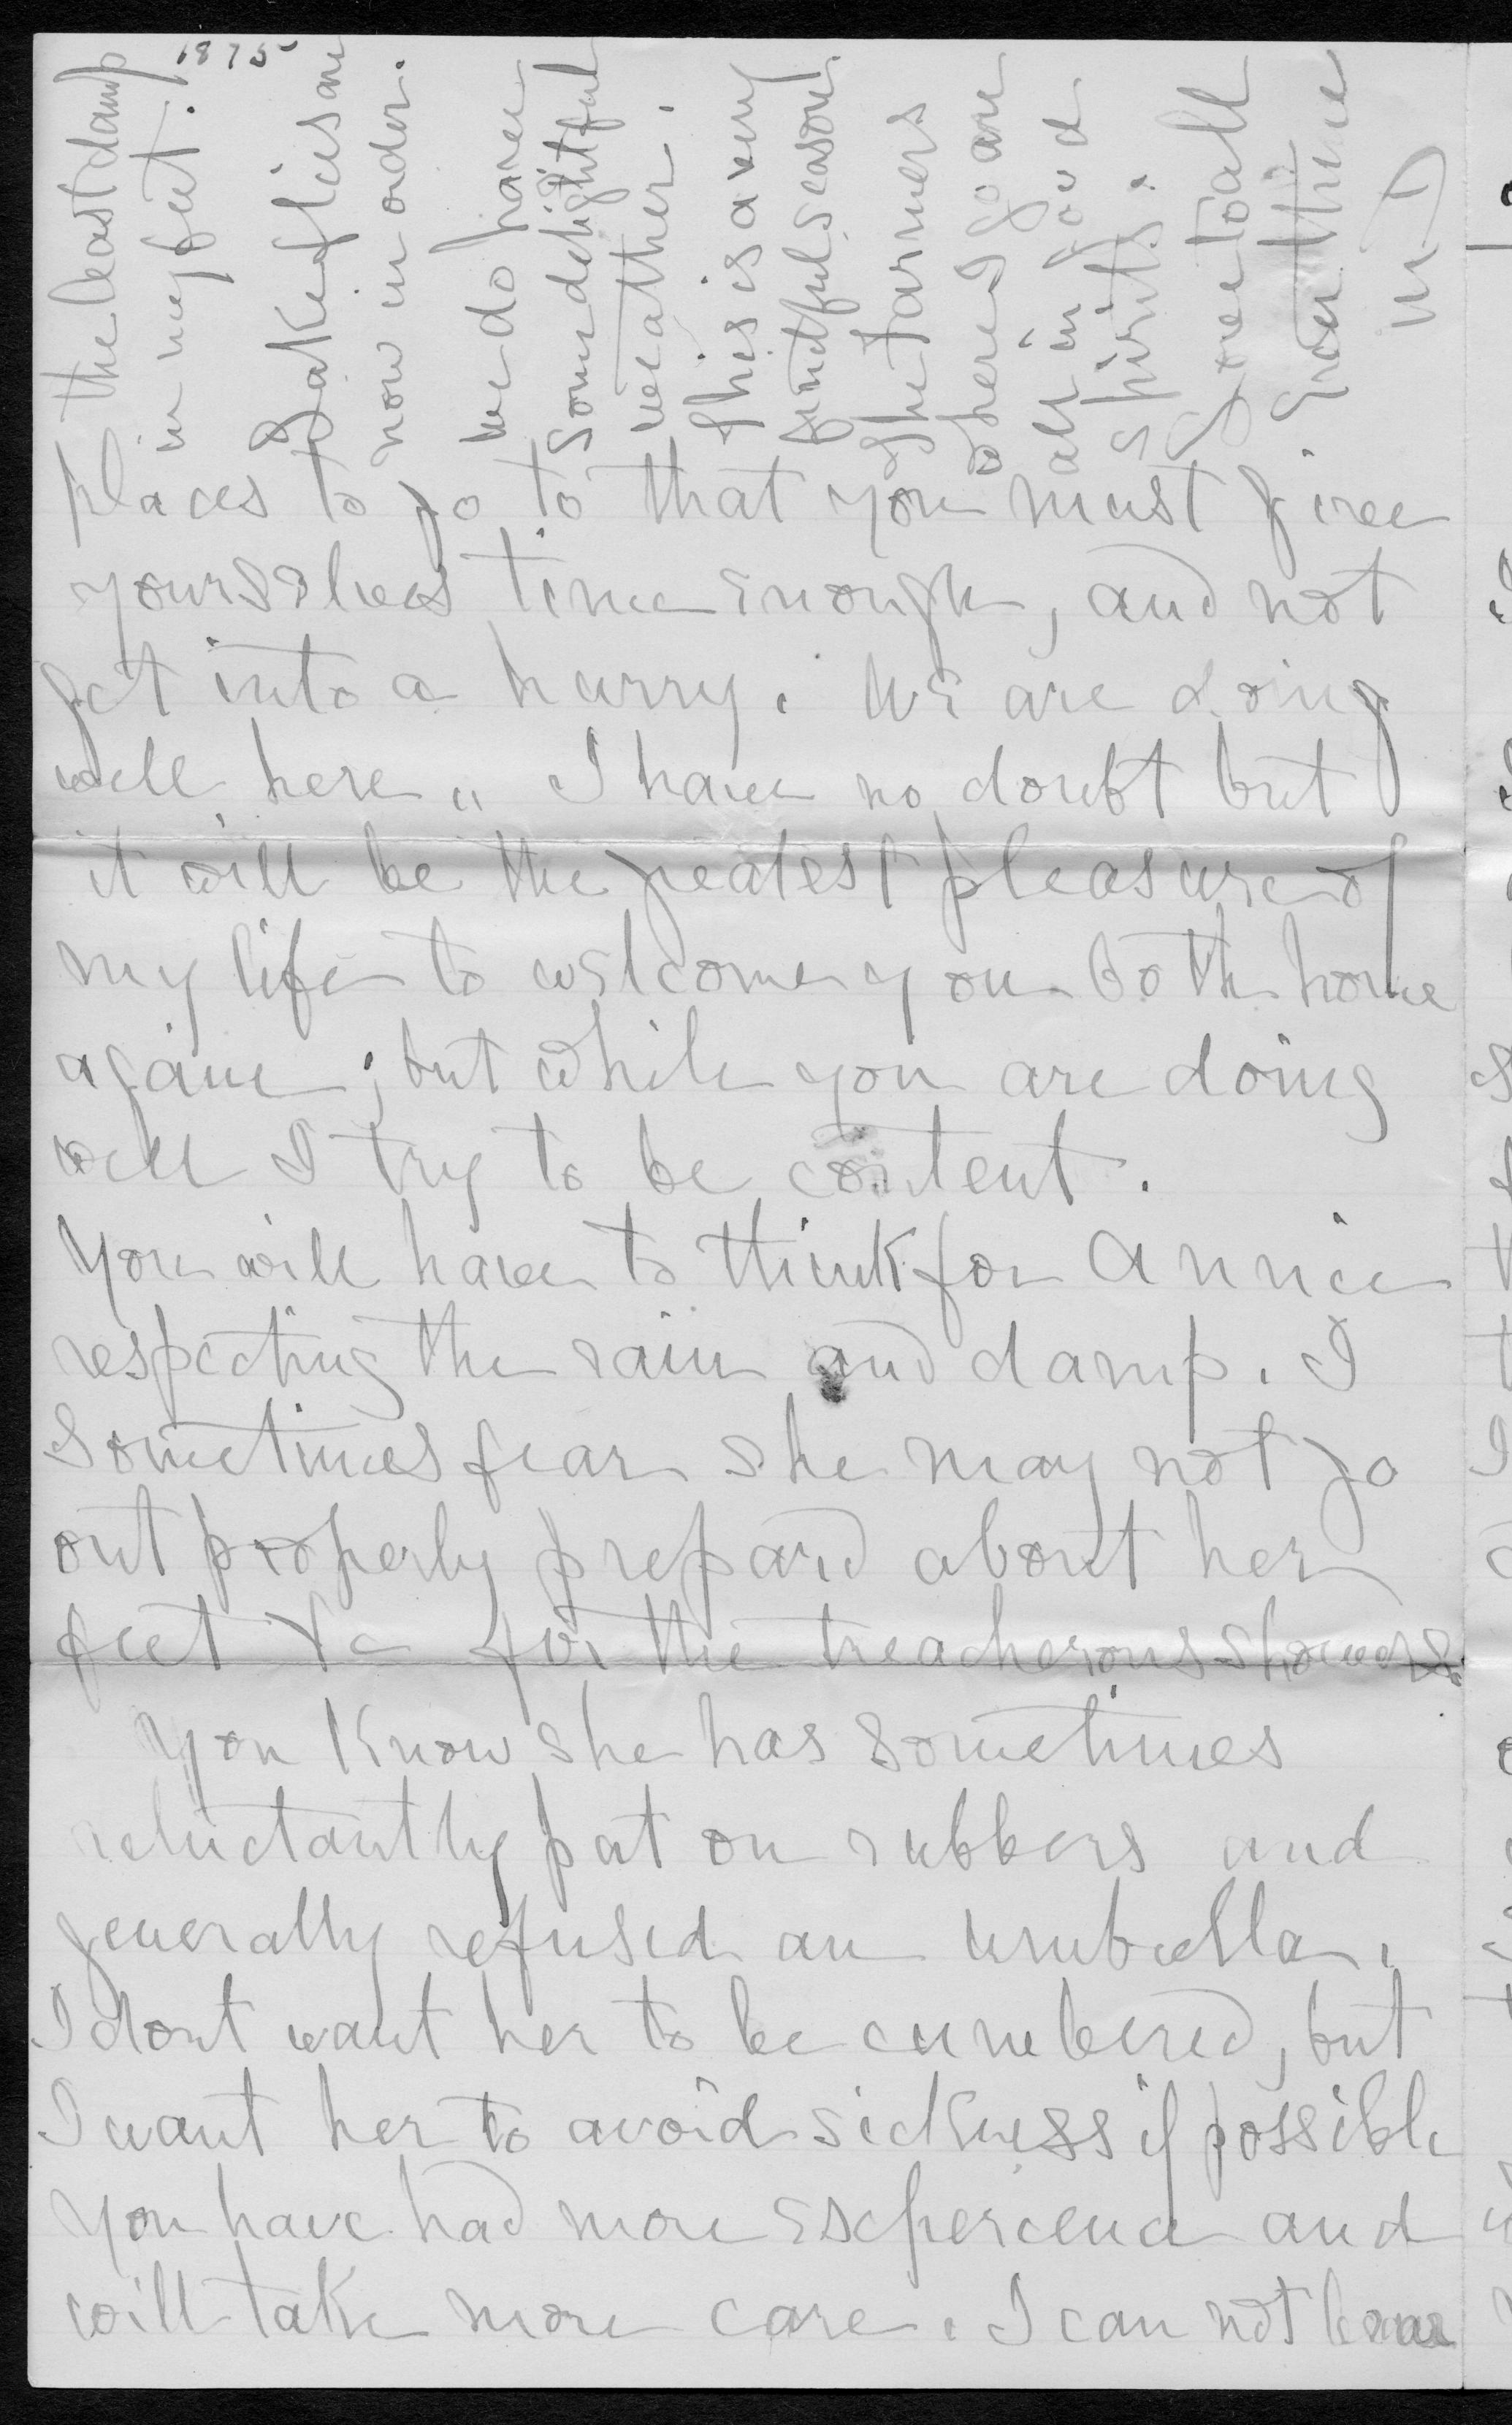 1875
places to go to that you must give
yourselves time enough, and not
get into a hurry. We are doing
well here. I have no doubt but
it will be the greatest pleasure of
my life to welcome you both home
again; but while you are doing
well I try to be content.
You will have to think for Annie
respecting the rain and damp. I
sometimes fear she may not go
out properly prepard about her
feet &c for the treacherous showers.
You know she has sometimes
reluctantly put on rubbers and
generally refused an umbrella.
I dont want her to be cumbered, but
I want her to avoid sickness if possible
You have had more experience and
will take more care. I can not bear
the least damp
in my feet.
Lake flies are
now in order.
We do have
some delightful
weather.
This is a very
fruitful season.
The Farmers
where I go are
all in good
spirits.
Love to all
from thine
M D